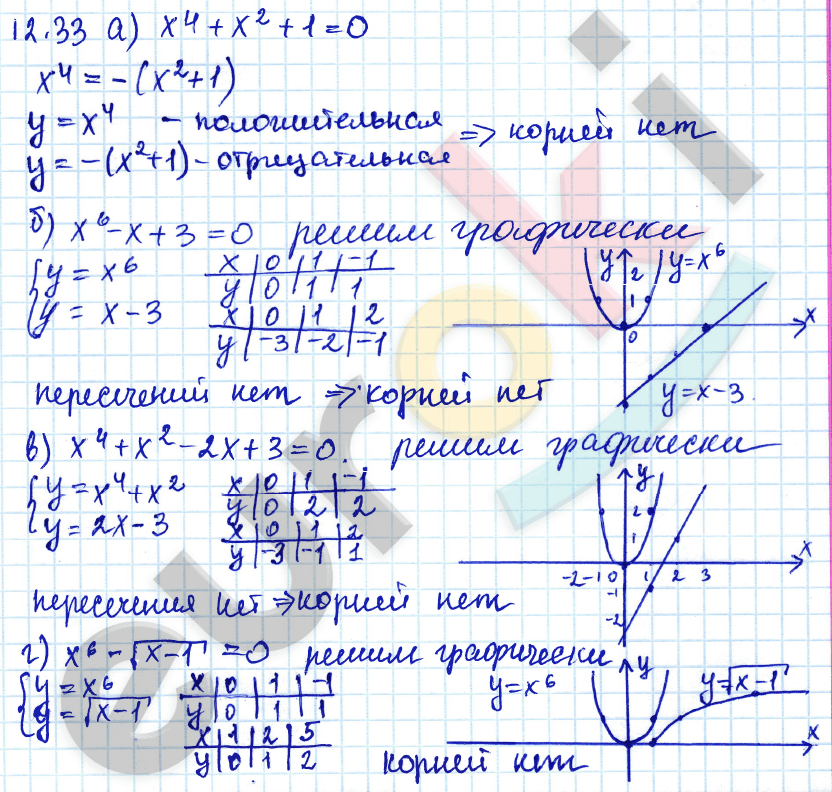 12.33 а) x⁴ + x² + 1 = 0
x⁴ = -(x² + 1)
y = x⁴ - положительная
y = -(x²+1) - отрицательная
=> корней нет
б) x⁶ - x + 3 = 0 решим графически
{ y = x⁶
y = x - 3
x | 0 | 1 | -1
y | 0 | 1 | 1
x | 0 | 1 | 2
y | -3 | -2 | -1
y 2 1 0 x
y=x⁶
y=x-3
пересечений нет => корней нет
в) x⁴ + x² - 2x + 3 = 0. решим графически
{ y = x⁴ + x²
y = 2x - 3
x | 0 | 1 | -1
y | 0 | 2 | 2
x | 0 | 1 | 2
y | -3 | -1 | 1
y 2 1 x
-2 -1 0 1 2 3
-1
-2
пересечения нет => корней нет
г) x⁶ - √(x-1) = 0 решим графически
{ y = x⁶
y = √(x-1)
x | 0 | 1 | -1
y | 0 | 1 | 1
x | 1 | 2 | 5
y | 0 | 1 | 2
y=x⁶
y
y=√(x-1)
x
корней нет
euroki